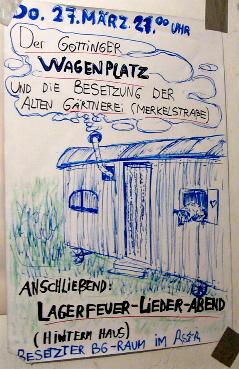 DO. 27. MÄRZ 21.00 UHR
DER GÖTTINGER
WAGENPLATZ
UND DIE BESETZUNG DER
ALTEN GÄRTNEREI (MERKELSTRAßE)
ANSCHLIEßEND:
LAGERFEUER-LIEDER-ABEND
(HINTERM HAUS)
BESETZTER BG-RAUM IM